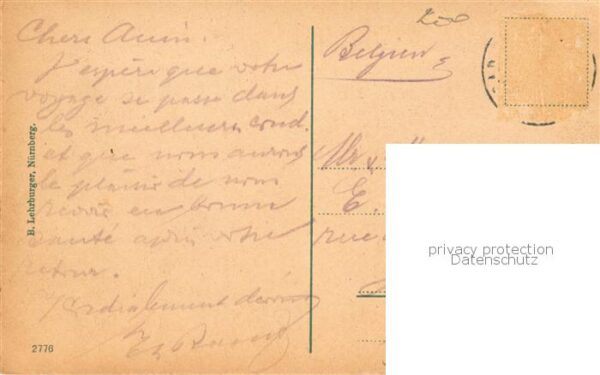 Chers Amis.
J'espère que votre
voyage se passe dans
les meilleures cond.
et que nous aurons
le plaisir de nous
revoir en bonne
santé après votre
retour.
Cordialement
B. Lehrburger, Nürnberg.
2776
Belgien
Mr
E.
rue
privacy protection
Datenschutz